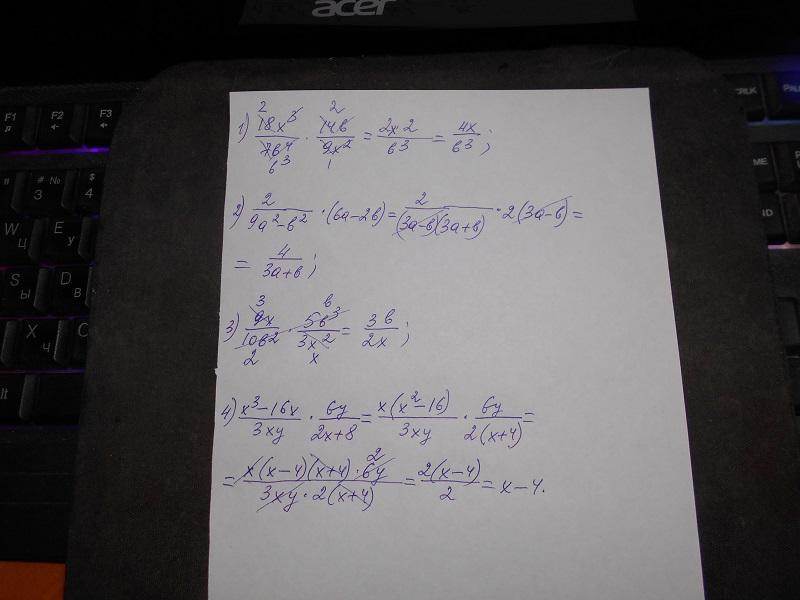 acer
F1 F2 F3
1) 18x³/7b⁴ · 14b/9x² = 2x·2/b³ = 4x/b³;
2) 2/(9a²-b²) · (6a-2b) = 2/((3a-b)(3a+b)) · 2(3a-b) =
= 4/(3a+b);
3) 9x/10b² · 5b³/3x² = 3b/2x;
4) (x³-16x)/3xy · 6y/(2x+8) = x(x²-16)/3xy · 6y/(2(x+4)) =
= x(x-4)(x+4)·6y/(3xy·2(x+4)) = 2(x-4)/2 = x-4.